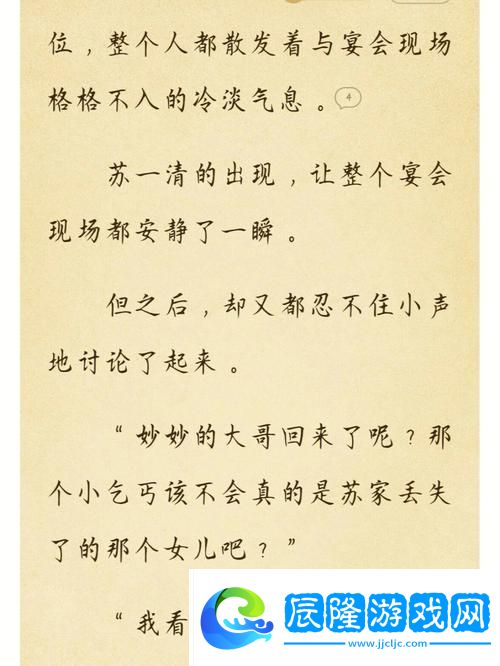 位，整个人都散发着与宴会现场
格格不入的冷淡气息。 4
苏一清的出现，让整个宴会
现场都安静了一瞬。
但之后，却又都忍不住小声
地讨论了起来。
“妙妙的大哥回来了呢？那
个小乞丐该不会真的是苏家丢失
了的那个女儿吧？”
“我看
辰隆游戏网
www.jjcljc.com